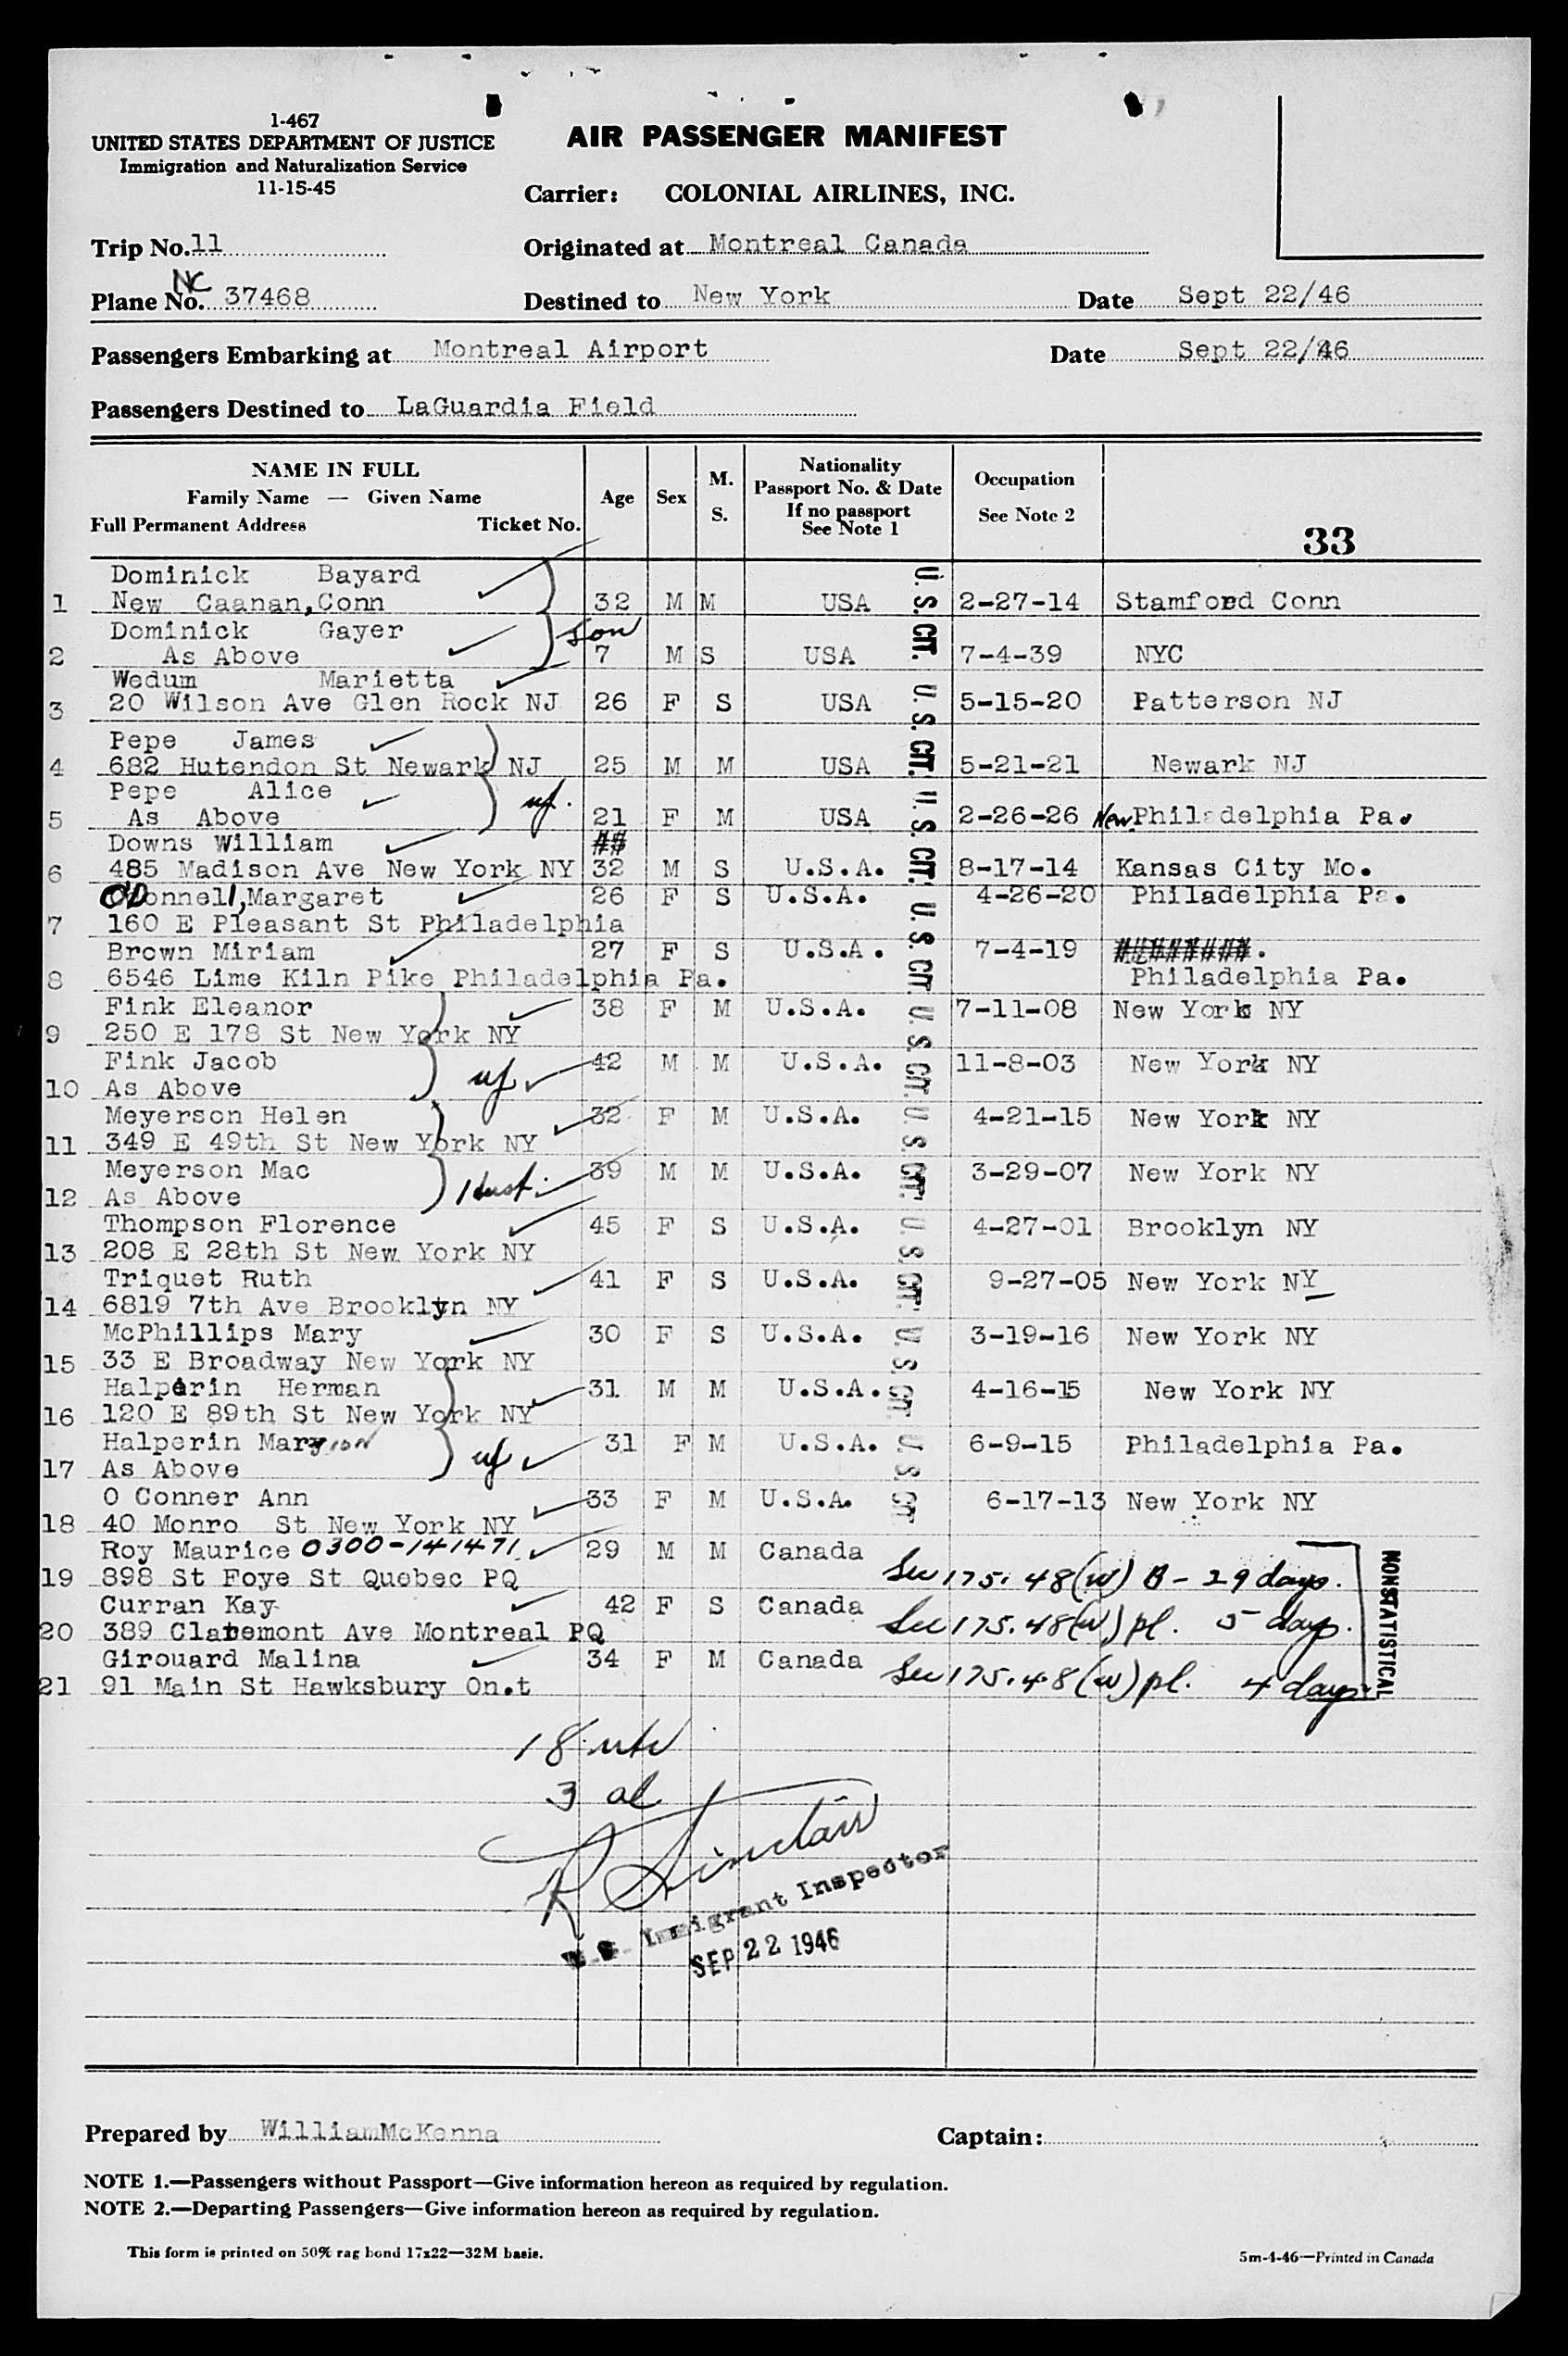 1-467
UNITED STATES DEPARTMENT OF JUSTICE
Immigration and Naturalization Service
11-15-45
AIR PASSENGER MANIFEST
Carrier: COLONIAL AIRLINES, INC.
Trip No. 11 Originated at Montreal Canada
NC
Plane No. 37468 Destined to New York Date Sept 22/46
Passengers Embarking at Montreal Airport Date Sept 22/46
Passengers Destined to LaGuardia Field
NAME IN FULL
Family Name — Given Name
Full Permanent Address Ticket No.
Age Sex M. S.
Nationality
Passport No. & Date
If no passport
See Note 1
Occupation
See Note 2
33
Dominick Bayard
1 New Caanan, Conn 32 M M USA 2-27-14 Stamford Conn
Dominick Gayer son
2 As Above 7 M S USA 7-4-39 NYC
Wedum Marietta
3 20 Wilson Ave Glen Rock NJ 26 F S USA 5-15-20 Patterson NJ
Pepe James
4 682 Hutendon St Newark NJ 25 M M USA 5-21-21 Newark NJ
Pepe Alice wf.
5 As Above 21 F M USA 2-26-26 New Philadelphia Pa.
Downs William ##
6 485 Madison Ave New York NY 32 M S U.S.A. 8-17-14 Kansas City Mo.
O'Donnell, Margaret 26 F S U.S.A. 4-26-20 Philadelphia Pa.
7 160 E Pleasant St Philadelphia
Brown Miriam 27 F S U.S.A. 7-4-19 ########.
8 6546 Lime Kiln Pike Philadelphia Pa. Philadelphia Pa.
Fink Eleanor 38 F M U.S.A. 7-11-08 New York NY
9 250 E 178 St New York NY
Fink Jacob wf 42 M M U.S.A. 11-8-03 New York NY
10 As Above
Meyerson Helen 32 F M U.S.A. 4-21-15 New York NY
11 349 E 49th St New York NY
Meyerson Mac Hust. 39 M M U.S.A. 3-29-07 New York NY
12 As Above
Thompson Florence 45 F S U.S.A. 4-27-01 Brooklyn NY
13 208 E 28th St New York NY
Triquet Ruth 41 F S U.S.A. 9-27-05 New York NY
14 6819 7th Ave Brooklyn NY
McPhillips Mary 30 F S U.S.A. 3-19-16 New York NY
15 33 E Broadway New York NY
Halperin Herman 31 M M U.S.A. 4-16-15 New York NY
16 120 E 89th St New York NY
Halperin Maryion wf 31 F M U.S.A. 6-9-15 Philadelphia Pa.
17 As Above
O Conner Ann 33 F M U.S.A. 6-17-13 New York NY
18 40 Monro St New York NY
Roy Maurice 0300-141471 29 M M Canada
19 898 St Foye St Quebec PQ Sec 175.48(w) B - 29 days.
Curran Kay 42 F S Canada
20 389 Claremont Ave Montreal PQ Sec 175.48(w) pl. 5 days.
Girouard Malina 34 F M Canada
21 91 Main St Hawksbury On.t Sec 175.48(w) pl. 4 days.
U. S. CIT. U. S. CIT. U. S. CIT. U. S. CIT U. S. CIT. U. S. CIT. U. S. CIT. U. S. CIT. U. S. CIT
NONSTATISTICAL
18 utc
3 al
R Sinclair
U.S. Immigrant Inspector
SEP 22 1946
Prepared by WilliamMcKenna Captain:
NOTE 1.—Passengers without Passport—Give information hereon as required by regulation.
NOTE 2.—Departing Passengers—Give information hereon as required by regulation.
This form is printed on 50% rag bond 17x22—32M basis. 5m-4-46—Printed in Canada